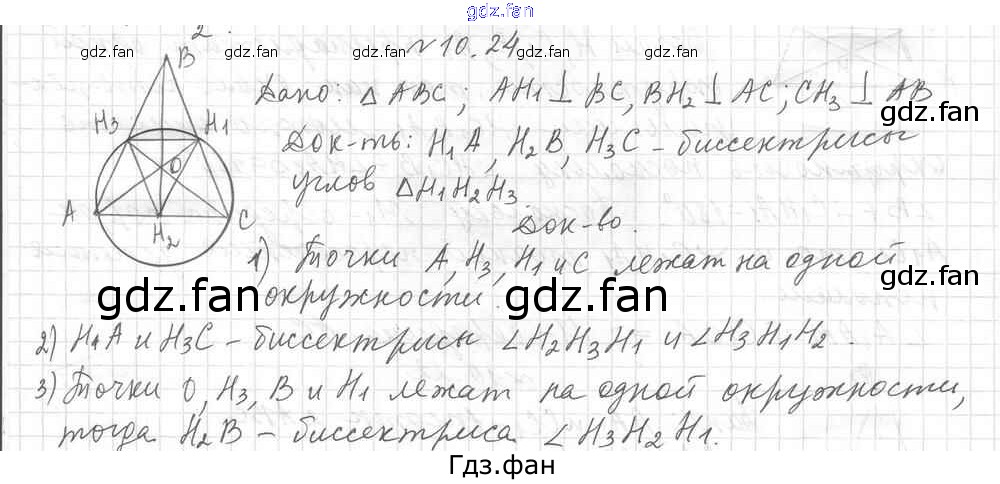 gdz.fan
2.
B
№10.24
gdz.fan gdz.fan gdz.fan gdz.fan gdz.fan
Дано: △ABC; AH1⊥BC, BH2⊥AC; CH3⊥AB
gdz.fan
H3 H1
Док-ть: H1A, H2B, H3C – биссектрисы
O
углов △H1H2H3.
A H2 C
Док-во.
1) Точки A, H3, H1 и C лежат на одной
окружности.
gdz.fan gdz.fan gdz.fan
2) H1A и H3C – биссектрисы ∠H2H3H1 и ∠H3H1H2.
3) Точки O, H3, B и H1 лежат на одной окружности,
тогда H2B – биссектриса ∠H3H2H1.
Гдз.фан